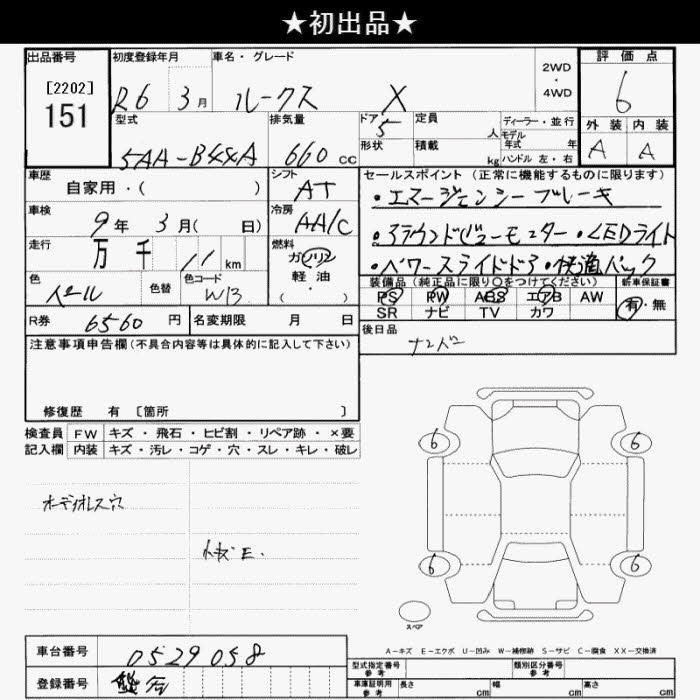 ★初出品★
出品番号 初度登録年月 車名・グレード 評価点
[2202] 151 R6 3月 ルークス X 2WD・4WD 6
型式 排気量 ドア 5 定員 人 ディーラー・並行 外装 内装
5AA-B44A 660 cc 形状 積載 kg モデル年式 年 ハンドル 左・右 A A
車歴 自家用・( ) シフト AT セールスポイント (正常に機能するものに限ります)
・エマージェンシーブレーキ
車検 9年 3月( 日) 冷房 AA/C ・アラウンドビューモニター・LEDライト
走行 万 千 11 km 燃料 ガソリン・軽油・( ) ・パワースライドドア・快適パック
色 パール 色替 色コード W13 装備品 (純正品に限り○をつけてください) 新車保証書
PS PW ABS エアB AW 有・無
SR ナビ TV カワ
R券 6560 円 名変期限 月 日 後日品
ナンバー
注意事項申告欄 (不具合内容等は具体的に記入して下さい)
修復歴 有 〔箇所 〕
検査員 FW キズ・飛石・ヒビ割・リペア跡・×要
記入欄 内装 キズ・汚レ・コゲ・穴・スレ・キレ・破レ
6 6
オーディオレス穴
6 6
スペア
A-キズ E-エクボ U-凹み W-補修跡 S-サビ C-腐食 XX-交換済
車台番号 0529058
型式指定番号 参考 類別区分番号 参考
登録番号
車庫証明用 参考 長さ cm 幅 cm 高さ cm